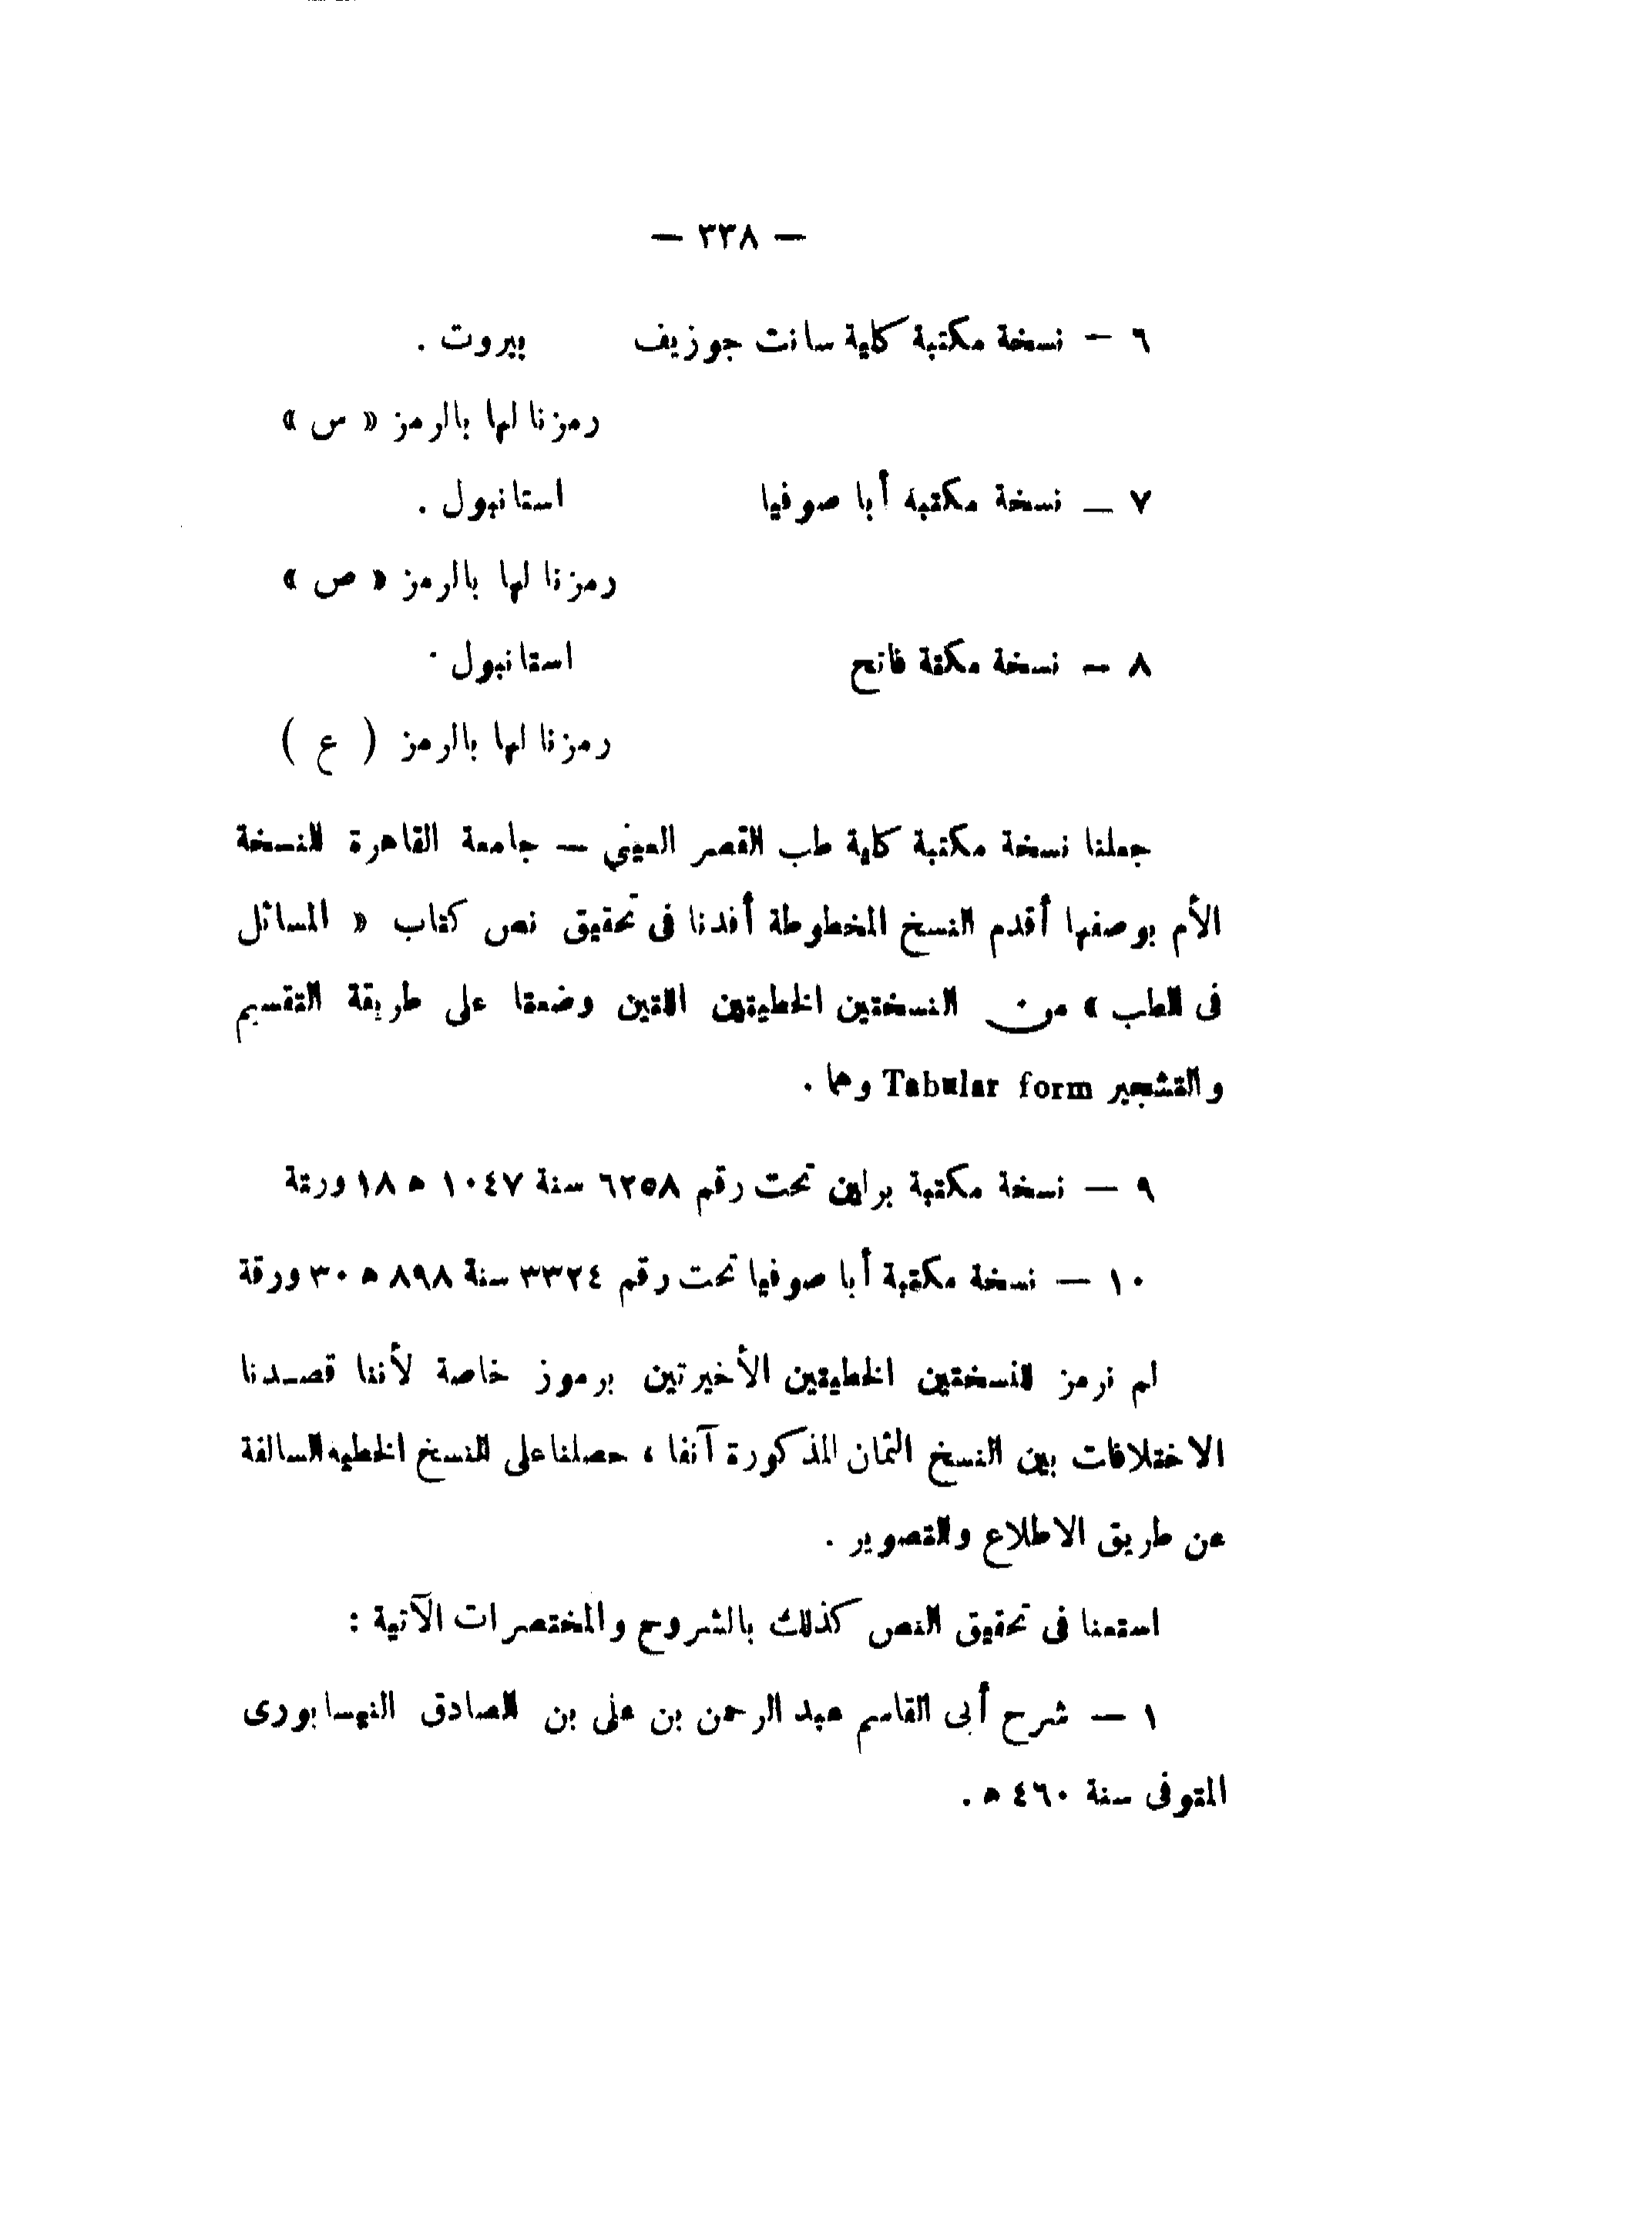 — ٣٣٨ —
٦ — نسخة مكتبة كلية سانت جوزيف بيروت .
رمزنا لها بالرمز « س »
٧ — نسخة مكتبة أبا صوفيا استانبول .
رمزنا لها بالرمز « ص »
٨ — نسخة مكتبة فاتح استانبول .
رمزنا لها بالرمز ( ع )
جعلنا نسخة مكتبة كلية طب القصر العيني — جامعة القاهرة النسخة
الأم بوصفها أقدم النسخ المخطوطة أفدنا فى تحقيق نص كتاب « المسائل
فى الطب » من النسختين الخطيتين اللتين وضعتا على طريقة التقسيم
والتشجير Tabular form وهما .
٩ — نسخة مكتبة برلين تحت رقم ٦٢٥٨ سنة ١٠٤٧ ه ١٨ ورقة
١٠ — نسخة مكتبة أبا صوفيا تحت رقم ٣٣٢٤ سنة ٨٩٨ ه ٣٠ ورقة
لم نرمز للنسختين الخطيتين الأخيرتين برموز خاصة لأننا قصدنا
الاختلافات بين النسخ الثمان المذكورة آنفا ، حصلنا على النسخ الخطيه السالفة
عن طريق الاطلاع والتصوير .
استعنا فى تحقيق النص كذلك بالشروح والمختصرات الآتية :
١ — شرح أبى القاسم عبد الرحمن بن على بن الصادق النيسابورى
المتوفى سنة ٤٦٠ ه .